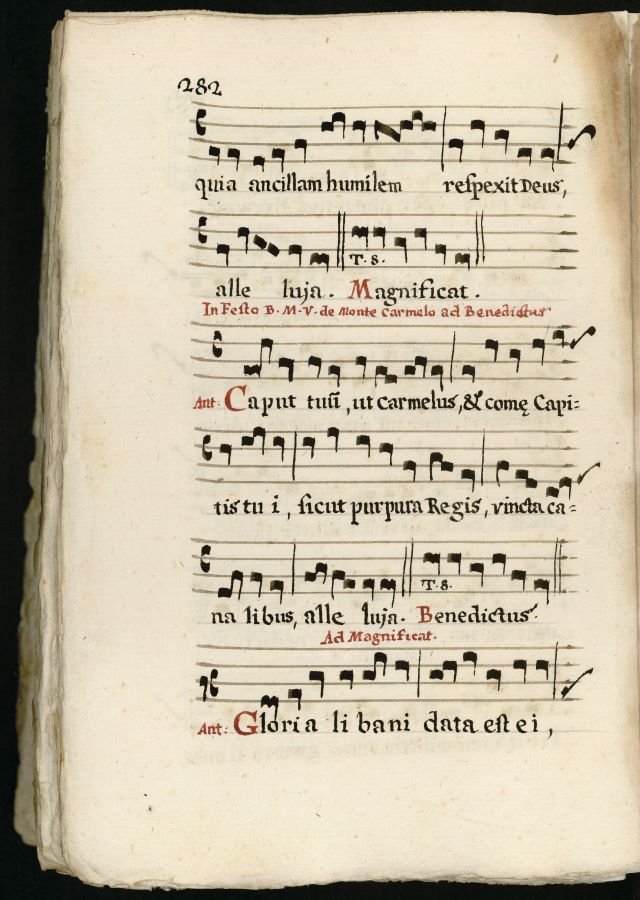 282
quia ancillam humilem respexit Deus,
T. 8.
alle luja. Magnificat.
In Festo B. M. V. de Monte Carmelo ad Benedictus
Ant: Caput tuũ, ut Carmelus, & comę Capi=
tis tu i, sicut purpura Regis, vincta ca=
T. 8.
na libus, alle luja. Benedictus.
Ad Magnificat.
Ant: Gloria li bani data est ei,